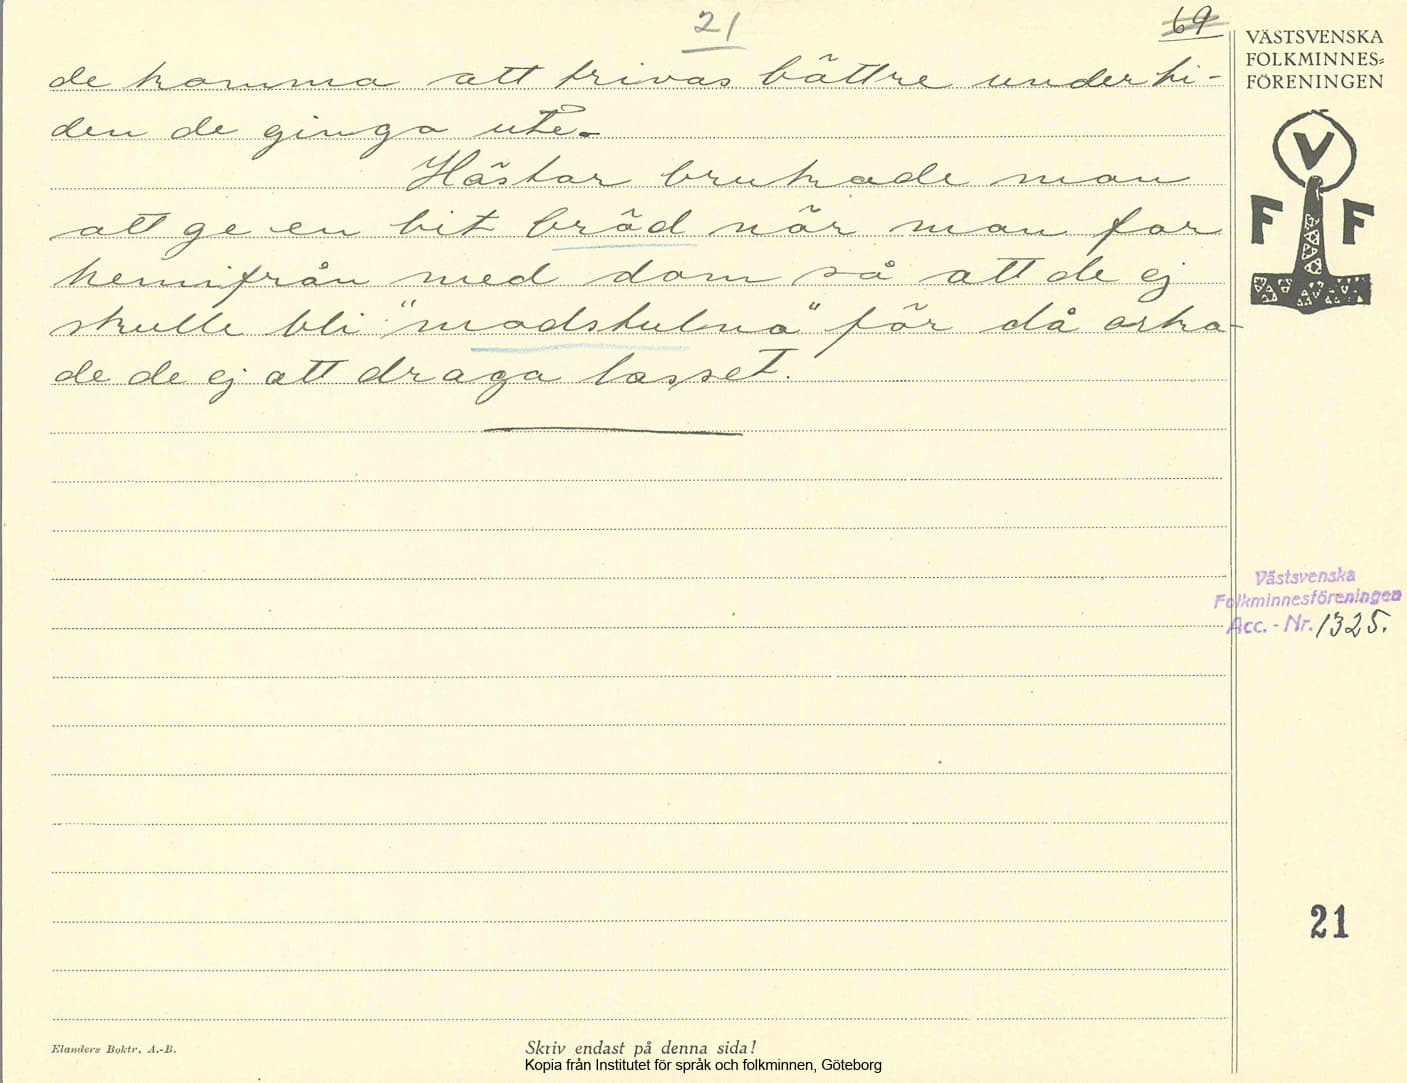 21
69
VÄSTSVENSKA
FOLKMINNES=
FÖRENINGEN
V
F F
de komma att trivas bättre under ti-
den de ginga ute.
Hästar brukade man
att ge en bit bröd när man far
hemifrån med dom så att de ej
skulle bli "madstulna" för då orka-
de de ej att draga lasset.
Västsvenska
Folkminnesföreningen
Acc. - Nr. 1325.
21
Elanders Boktr. A.-B.
Skriv endast på denna sida!
Kopia från Institutet för språk och folkminnen, Göteborg